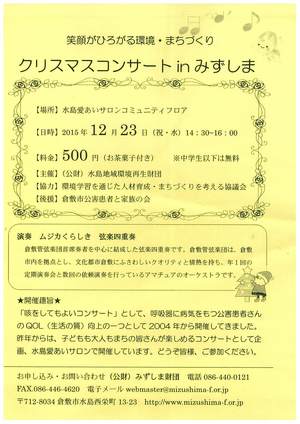 笑顔がひろがる環境・まちづくり
クリスマスコンサート in みずしま
【場所】水島愛あいサロンコミュニティフロア
【日時】2015年 12 月 23 日（祝・水）14：30~16：00
【料金】500 円（お茶菓子付き） ※中学生以下は無料
【主催】（公財）水島地域環境再生財団
【協力】環境学習を通じた人材育成・まちづくりを考える協議会
【後援】倉敷市公害患者と家族の会
演奏 ムジカくらしき 弦楽四重奏
倉敷管弦楽団首席奏者を中心に結成した弦楽四重奏です。倉敷管弦楽団は、倉敷
市内を拠点とし、文化都市倉敷にふさわしいクオリティと情熱を持ち、年1回の
定期演奏会と数回の依頼演奏を行っているアマチュアのオーケストラです。
★開催趣旨★
「咳をしてもよいコンサート」として、呼吸器に病気をもつ公害患者さん
の QOL（生活の質）向上の一つとして 2004 年から開催してきました。
昨年からは、子どもも大人もまちの皆さんが楽しめるコンサートとして企
画、水島愛あいサロンで開催しています。どうぞ皆様、ご参加ください。
お申し込み・お問い合わせ（公財）みずしま財団 電話 086-440-0121
FAX.086-446-4620 電子メール webmaster@mizushima-f.or.jp
〒712-8034 倉敷市水島西栄町 13-23 http://www.mizushima-f.or.jp